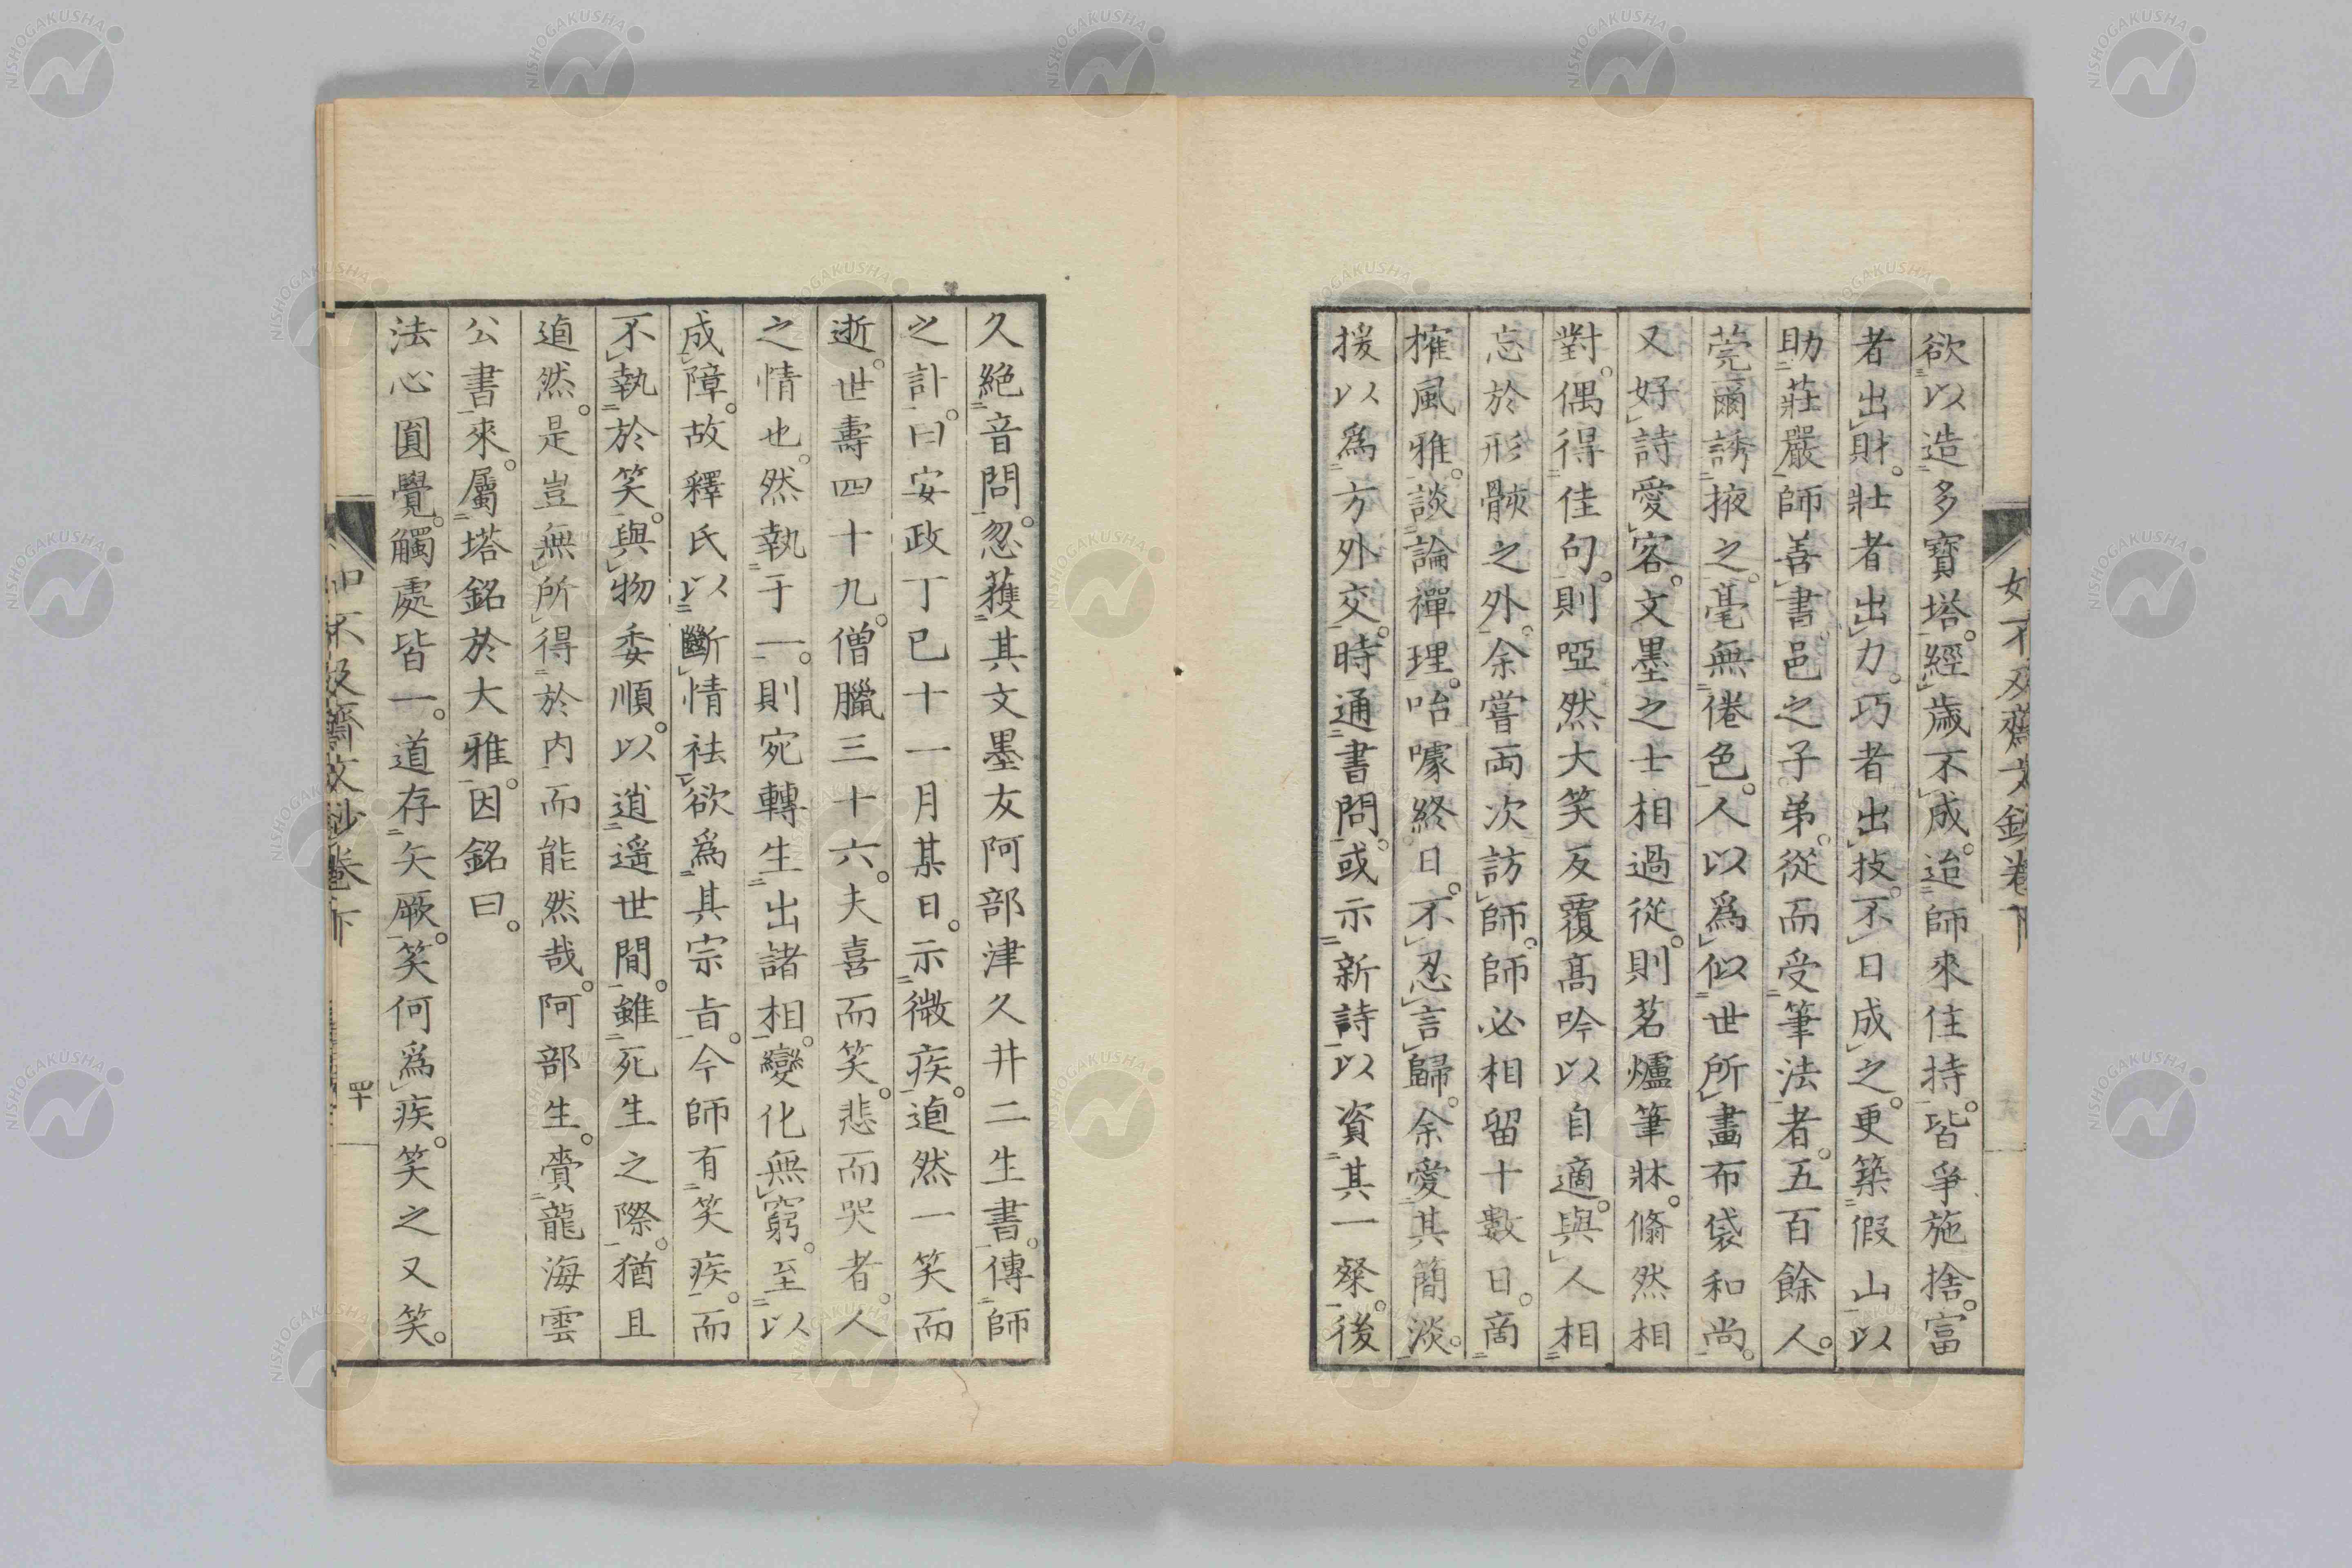 欲以造多寶塔。經歲不成。迨師來住持。皆爭施捨。富
者出財。壯者出力。巧者出技。不日成之。更築假山以
助莊嚴師善書邑之子弟。從而受筆法者。五百餘人。
莞爾誘掖之。毫無倦色。人以爲似世所畫布袋和尚。
又好詩愛客。文墨之士相過從。則茗爐筆牀。翛然相
對。偶得佳句。則啞然大笑反覆髙吟以自適。與人相
忘於形骸之外。余嘗兩次訪師。師必相留十數日。商
搉風雅。談論禪理。咍噱終日。不忍言歸。余愛其簡淡。
援以爲方外交。時通書問。或示新詩以資其一粲。後
久絕音問。忽獲其文墨友阿部津久井二生書。傳師
之訃。曰安政丁巳十一月某日。示微疾。逌然一笑而
逝。世壽四十九。僧臘三十六。夫喜而笑。悲而哭者。人
之情也。然執于一。則宛轉生出諸相。變化無窮。至以
成障。故釋氏以斷情祛欲爲其宗旨。今師有笑疾。而
不執於笑。與物委順。以逍遙世間。雖死生之際。猶且
逌然。是豈無所得於内而能然哉。阿部生。賷龍海雲
公書來。屬塔銘於大雅。因銘曰。
法心圓覺。觸處皆一。道存矣厥。笑何爲疾。笑之又笑。
如不及齋文鈔卷下
四十
NISHOGAKUSHA